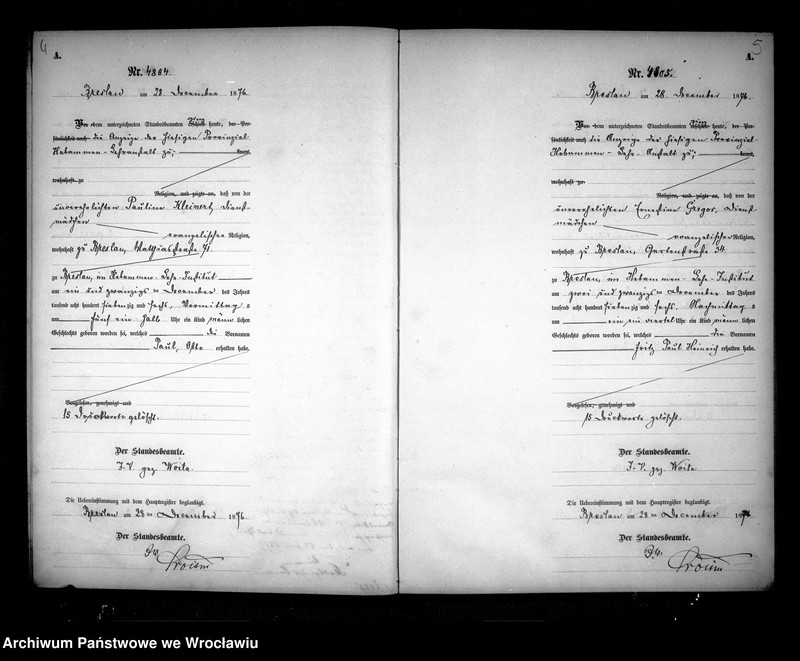 4
A.
Nr. 4804.
Breslau am 28. December 1876.
Vor dem unterzeichneten Standesbeamten heute, der Per-
sönlichkeit nach die Anzeige der hiesigen Provinzial
Hebammen-Lehranstalt zu,
kannt,
wohnhaft zu
Religion, und zeigte an, daß von der
unverehelichten Pauline Kleinert, Dienst-
mädchen
evangelischer Religion,
wohnhaft zu Breslau, Mathiasstraße 71.
zu Breslau, im Hebammen-Lehr-Institut
am ein und zwanzigsten December des Jahres
tausend acht hundert siebenzig und sechs, Vormittag s
um fünf ein halb Uhr ein Kind männlichen
Geschlechts geboren worden sei, welches die Vornamen
Paul, Otto erhalten habe.
Vorgelesen, genehmigt und
15 Druckworte gelöscht.
Der Standesbeamte.
I. V. gez. Woita
Die Uebereinstimmung mit dem Hauptregister beglaubigt.
Breslau am 28ten December 1876
Der Standesbeamte.
5
A.
Nr. 4805.
Breslau am 28. December 1876.
Vor dem unterzeichneten Standesbeamten heute, der Per-
sönlichkeit nach die Anzeige der hiesigen Provinzial-
Hebammen-Lehr-Anstalt zu,
kannt,
wohnhaft zu
Religion, und zeigte an, daß von der
unverehelichten Ernestine Gregor, Dienst-
mädchen
evangelischer Religion,
wohnhaft zu Breslau, Gartenstraße 34
zu Breslau, im Hebammen-Lehr-Institut
am zwei und zwanzigsten December des Jahres
tausend acht hundert siebenzig und sechs, Nachmittag s
um ein ein viertel Uhr ein Kind männlichen
Geschlechts geboren worden sei, welches die Vornamen
Fritz Paul Heinrich erhalten habe.
Vorgelesen, genehmigt und
15 Druckworte gelöscht.
Der Standesbeamte.
I. V. gez. Woita
Die Uebereinstimmung mit dem Hauptregister beglaubigt.
Breslau am 28ten December 1876
Der Standesbeamte.
Archiwum Państwowe we Wrocławiu